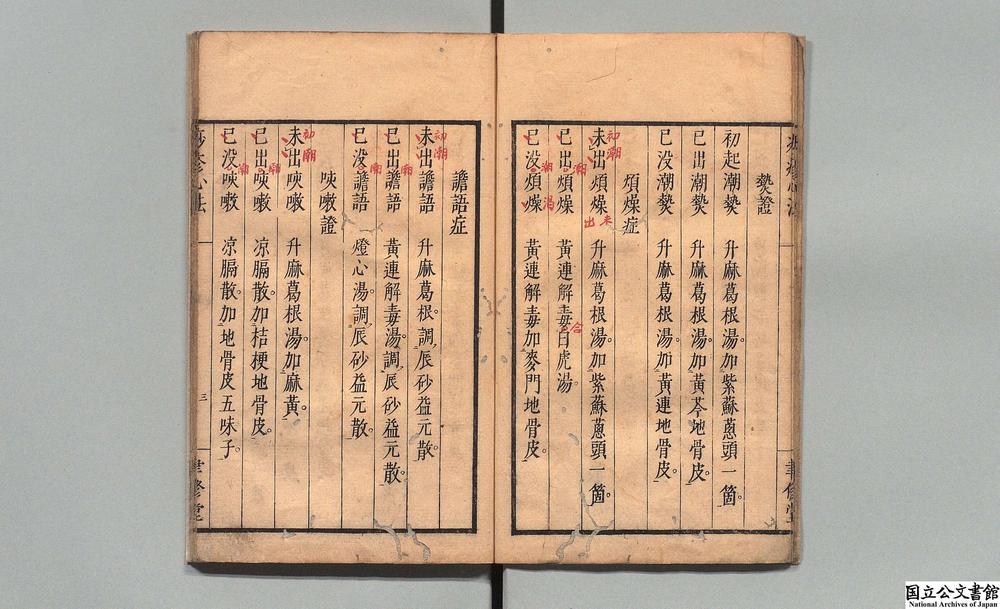 𤍠證
初起潮𤍠 升麻葛根湯。加紫蘇蔥頭一箇。
已出潮𤍠 升麻葛根湯。加黃芩地骨皮。
已没潮𤍠 升麻葛根湯。加黃連地骨皮。
煩燥症
未出煩燥 升麻葛根湯。加紫蘇蔥頭一箇。
初潮
未出
已出煩燥 黃連解毒白虎湯。
潮
合
已没煩燥 黃連解毒加麥門地骨皮。
渴
譫語症
未出譫語 升麻葛根。調辰砂益元散。
初潮
已出譫語 黃連解毒湯。調辰砂益元散。
已没譫語 燈心湯。調辰砂益元散。
咳嗽證
未出咳嗽 升麻葛根湯。加麻黃。
初潮
已出咳嗽 凉膈散。加桔梗地骨皮。
潮
已没咳嗽 凉膈散。加地骨皮五味子。
潮
三
聿修堂
国立公文書館
National Archives of Japan